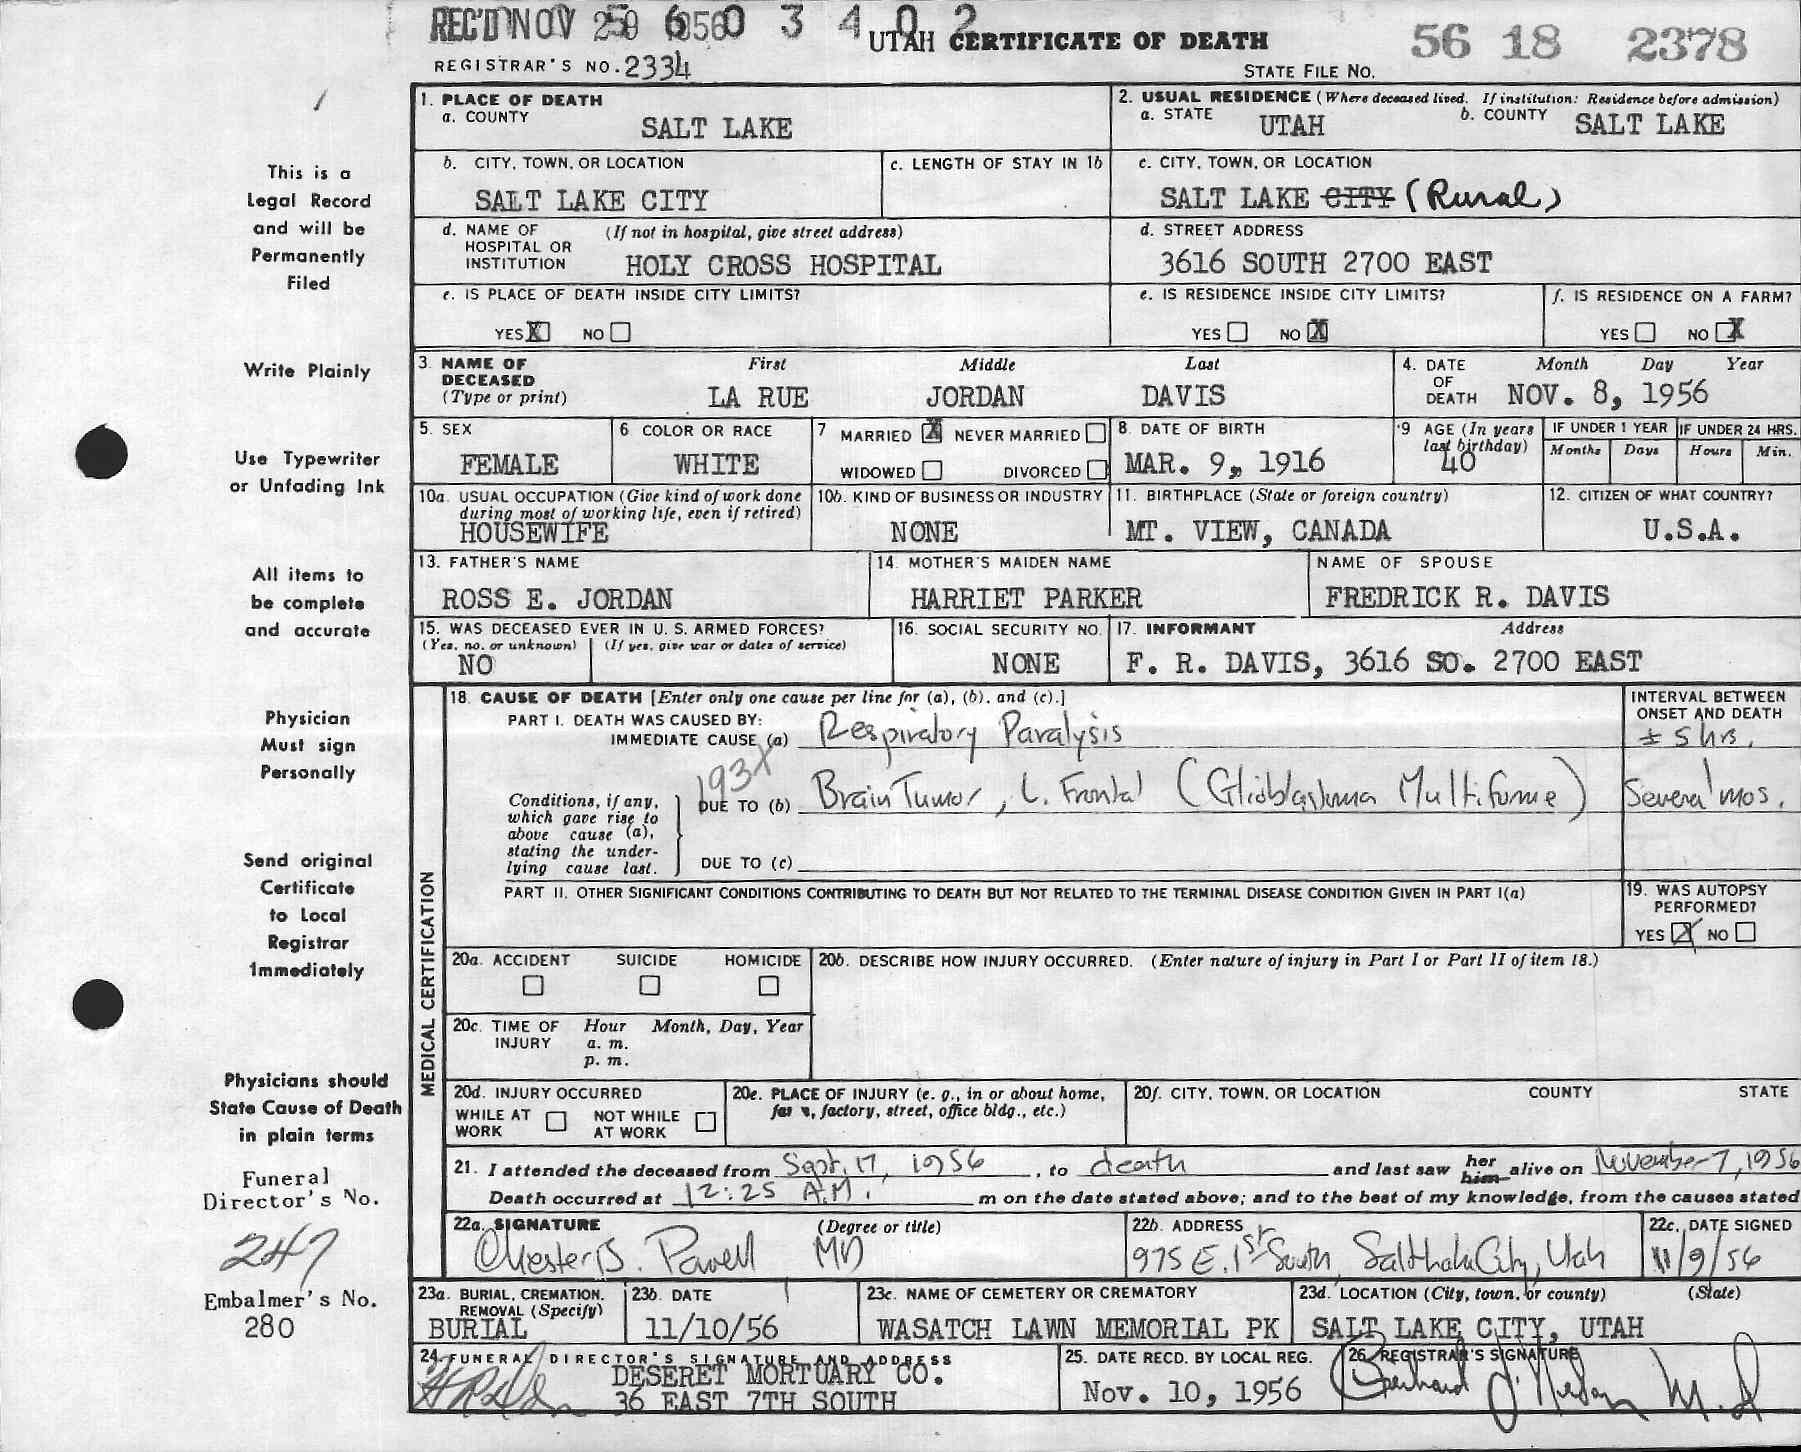 REC'D NOV 1956 6 0 3 4 0 2
UTAH CERTIFICATE OF DEATH
56 18 2378
REGISTRAR'S NO. 2334
STATE FILE NO.
1. PLACE OF DEATH
a. COUNTY
SALT LAKE
2. USUAL RESIDENCE (Where deceased lived. If institution: Residence before admission)
a. STATE UTAH b. COUNTY SALT LAKE
b. CITY, TOWN, OR LOCATION
SALT LAKE CITY
c. LENGTH OF STAY IN 1b
c. CITY, TOWN, OR LOCATION
SALT LAKE CITY (Rural)
d. NAME OF HOSPITAL OR INSTITUTION (If not in hospital, give street address)
HOLY CROSS HOSPITAL
d. STREET ADDRESS
3616 SOUTH 2700 EAST
e. IS PLACE OF DEATH INSIDE CITY LIMITS?
YES X NO
e. IS RESIDENCE INSIDE CITY LIMITS?
YES NO X
f. IS RESIDENCE ON A FARM?
YES NO X
3. NAME OF DECEASED (Type or print)
First Middle Last
LA RUE JORDAN DAVIS
4. DATE OF DEATH
Month Day Year
NOV. 8, 1956
5. SEX
FEMALE
6 COLOR OR RACE
WHITE
7 MARRIED X NEVER MARRIED
WIDOWED DIVORCED
8. DATE OF BIRTH
MAR. 9, 1916
9 AGE (In years last birthday)
40
IF UNDER 1 YEAR
Months Days
IF UNDER 24 HRS.
Hours Min.
10a. USUAL OCCUPATION (Give kind of work done during most of working life, even if retired)
HOUSEWIFE
10b. KIND OF BUSINESS OR INDUSTRY
NONE
11. BIRTHPLACE (State or foreign country)
MT. VIEW, CANADA
12. CITIZEN OF WHAT COUNTRY?
U.S.A.
13. FATHER'S NAME
ROSS E. JORDAN
14. MOTHER'S MAIDEN NAME
HARRIET PARKER
NAME OF SPOUSE
FREDRICK R. DAVIS
15. WAS DECEASED EVER IN U. S. ARMED FORCES?
(Yes, no, or unknown) (If yes, give war or dates of service)
NO
16. SOCIAL SECURITY NO.
NONE
17. INFORMANT Address
F. R. DAVIS, 3616 SO. 2700 EAST
MEDICAL CERTIFICATION
18. CAUSE OF DEATH [Enter only one cause per line for (a), (b), and (c).]
PART I. DEATH WAS CAUSED BY:
IMMEDIATE CAUSE (a) Respiratory Paralysis
INTERVAL BETWEEN ONSET AND DEATH
± 5 hrs.
193X
Conditions, if any, which gave rise to above cause (a), stating the underlying cause last.
DUE TO (b) Brain Tumor, L. Frontal (Glioblastoma Multiforme) Several mos.
DUE TO (c)
PART II. OTHER SIGNIFICANT CONDITIONS CONTRIBUTING TO DEATH BUT NOT RELATED TO THE TERMINAL DISEASE CONDITION GIVEN IN PART I(a)
19. WAS AUTOPSY PERFORMED?
YES X NO
20a. ACCIDENT SUICIDE HOMICIDE
20b. DESCRIBE HOW INJURY OCCURRED. (Enter nature of injury in Part I or Part II of item 18.)
20c. TIME OF INJURY Hour Month, Day, Year
a. m.
p. m.
20d. INJURY OCCURRED
WHILE AT WORK NOT WHILE AT WORK
20e. PLACE OF INJURY (e. g., in or about home, farm, factory, street, office bldg., etc.)
20f. CITY, TOWN, OR LOCATION COUNTY STATE
21. I attended the deceased from Sept. 17, 1956, to death and last saw her him alive on November 7, 1956
Death occurred at 12:25 A.M. m on the date stated above; and to the best of my knowledge, from the causes stated
22a. SIGNATURE (Degree or title)
Chester B. Powell MD
22b. ADDRESS
975 E. 1st South, Salt Lake City, Utah
22c. DATE SIGNED
11/9/56
23a. BURIAL, CREMATION, REMOVAL (Specify)
BURIAL
23b. DATE
11/10/56
23c. NAME OF CEMETERY OR CREMATORY
WASATCH LAWN MEMORIAL PK
23d. LOCATION (City, town, or county) (State)
SALT LAKE CITY, UTAH
24. FUNERAL DIRECTOR'S SIGNATURE AND ADDRESS
DESERET MORTUARY CO.
36 EAST 7TH SOUTH
25. DATE RECD. BY LOCAL REG.
Nov. 10, 1956
26. REGISTRAR'S SIGNATURE
This is a
Legal Record
and will be
Permanently
Filed
Write Plainly
Use Typewriter
or Unfading Ink
All items to
be complete
and accurate
Physician
Must sign
Personally
Send original
Certificate
to Local
Registrar
Immediately
Physicians should
State Cause of Death
in plain terms
Funeral
Director's No.
247
Embalmer's No.
280